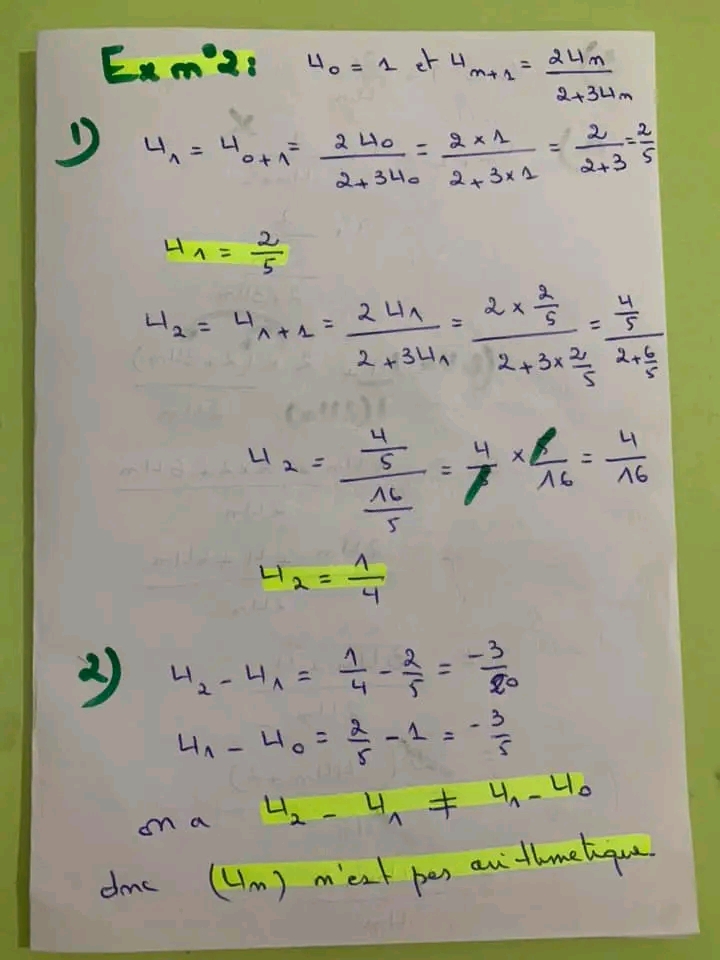 Ex n°2: U₀ = 1 et Uₙ₊₁ = 2Uₙ / (2+3Uₙ)
1) U₁ = U₀₊₁ = 2U₀ / (2+3U₀) = (2×1) / (2+3×1) = 2 / (2+3) = 2/5
U₁ = 2/5
U₂ = U₁₊₁ = 2U₁ / (2+3U₁) = (2 × 2/5) / (2+3×2/5) = (4/5) / (2+6/5)
U₂ = (4/5) / (16/5) = 4/5 × 5/16 = 4/16
U₂ = 1/4
2) U₂ - U₁ = 1/4 - 2/5 = -3/20
U₁ - U₀ = 2/5 - 1 = -3/5
on a U₂ - U₁ ≠ U₁ - U₀
donc (Uₙ) n'est pas arithmetique.